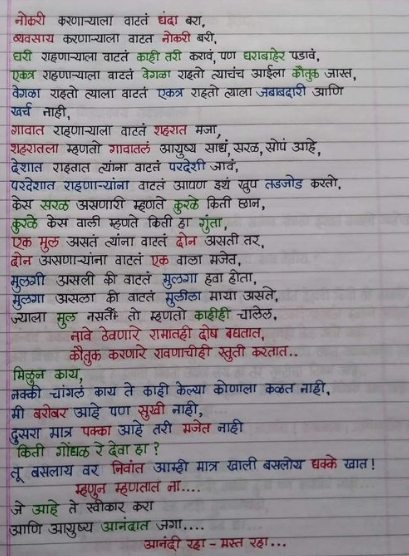 नोकरी करणाऱ्याला वाटतं धंदा बरा,
व्यवसाय करणाऱ्याला वाटत नोकरी बरी,
घरी राहणाऱ्याला वाटतं काही तरी करावं, पण घराबाहेर पडावं,
एकत्र राहणाऱ्याला वाटतं वेगळा राहतो त्याचंच आईला कौतुक जास्त,
वेगळा राहतो त्याला वाटतं एकत्र राहतो त्याला जबाबदारी आणि
खर्च नाही,
गावात राहणाऱ्याला वाटतं शहरात मजा,
शहरातला म्हणतो गावातलं आयुष्य साधं, सरळ, सोपं आहे,
देशात राहतात त्यांना वाटतं परदेशी जावं,
परदेशात राहाणाऱ्यांना वाटतं आपण इथं खुप तडजोड करतो,
केस सरळ असणारी म्हणते कुरळे किती छान,
कुरळे केस वाली म्हणते किती हा गुंता,
एक मुल असतं त्यांना वाटतं दोन असती तर,
दोन असणाऱ्यांना वाटतं एक वाला मजेत,
मुलगी असली की वाटतं मुलगा हवा होता,
मुलगा असला की वाटतं मुलीला माया असते,
ज्याला मुल नसतीं तो म्हणतो काहीही चालेल,
नावे ठेवणारे रामातही दोष बघतात,
कौतुक करणारे रावणाचीही स्तुती करतात..
मिळुन काय,
नक्की चांगलं काय ते काही केल्या कोणाला कळत नाही,
मी बरोबर आहे पण सुखी नाही,
दुसरा मात्र पक्का आहे तरी मजेत नाही
किती गोंधळ रे देवा हा ?
तू बसलाय वर निवांत आम्ही मात्र खाली बसलोय धक्के खात !
म्हणुन म्हणतात ना....
जे आहे ते स्वीकार करा
आणि आयुष्य आनंदात जगा....
आनंदी रहा - मस्त रहा...